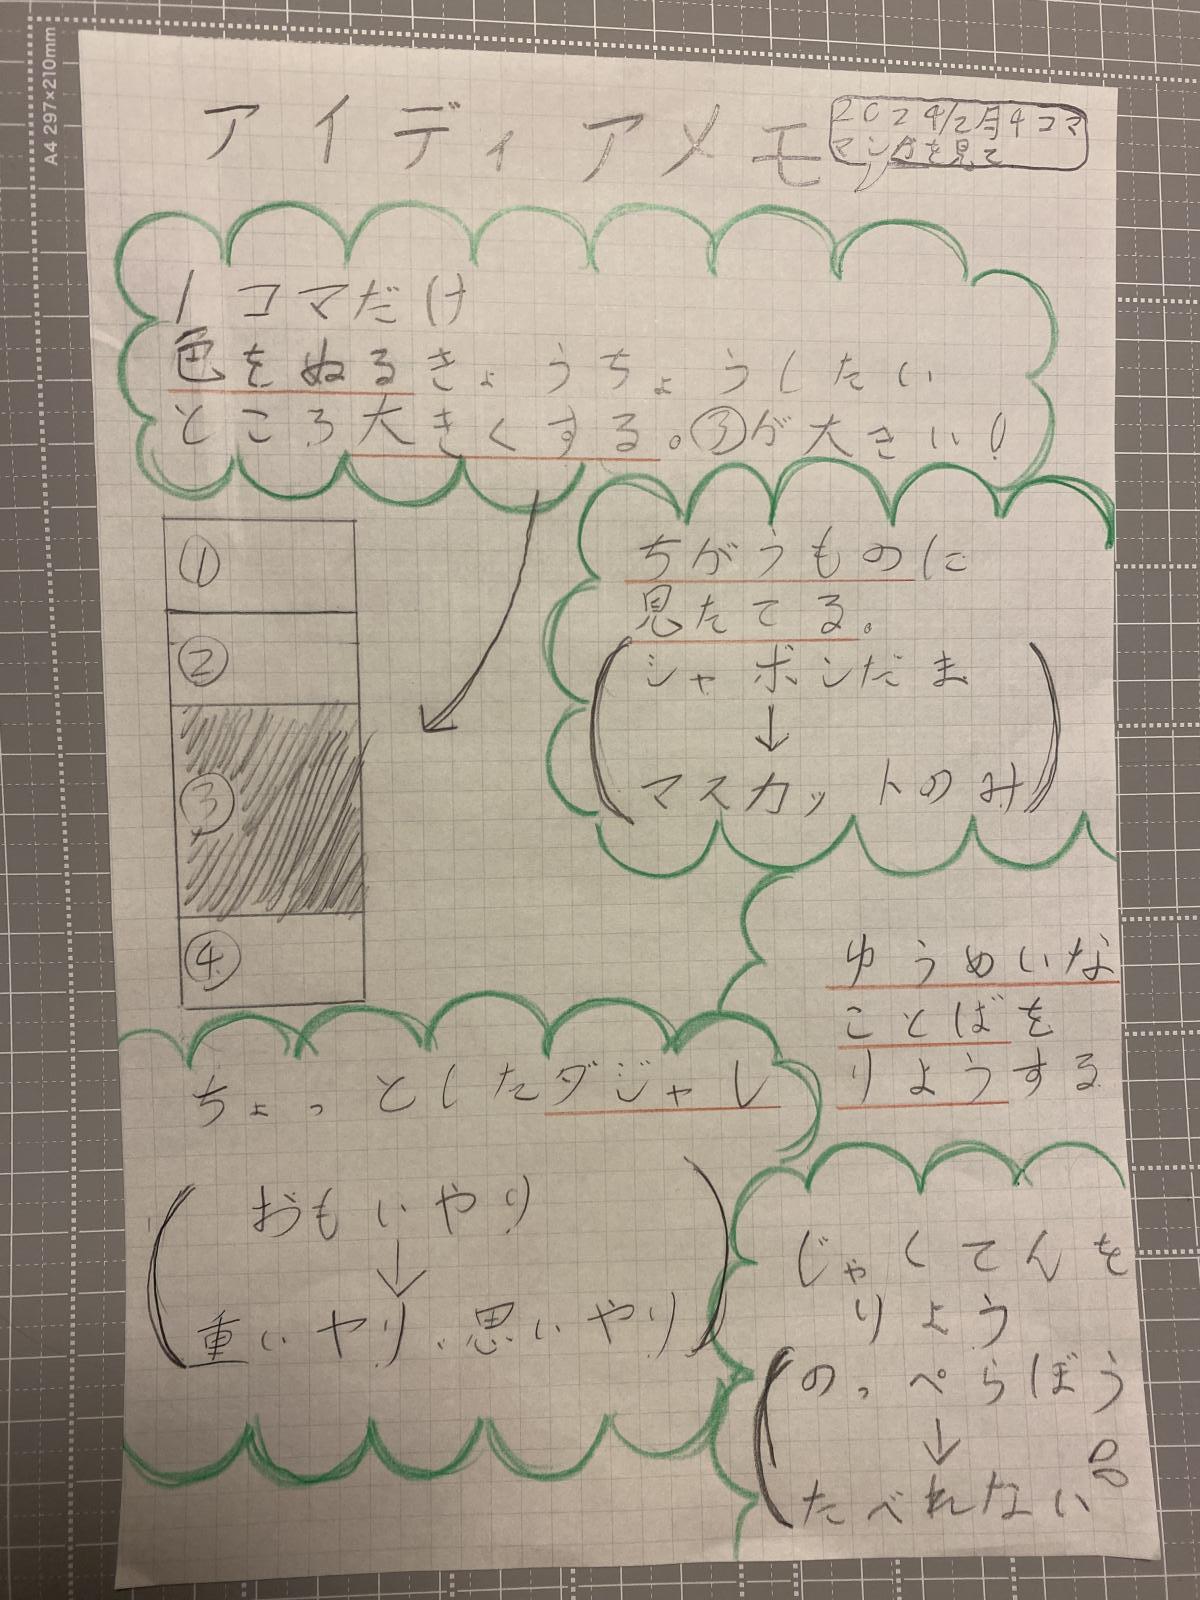 A4 297×210mm
アイディアメモ
2024/2月4コマ
マンガを見て
1コマだけ
色をぬるきょうちょうしたい
ところ大きくする。③が大きい!
①
②
③
④
ちがうものに
見たてる。
(シャボンだま
↓
マスカットのみ)
ゆうめいな
ことばを
りようする
ちょっとしたダジャレ
(おもいやり
↓
重いやり、思いやり)
じゃくてんを
りよう
(のっぺらぼう
↓
たべれない